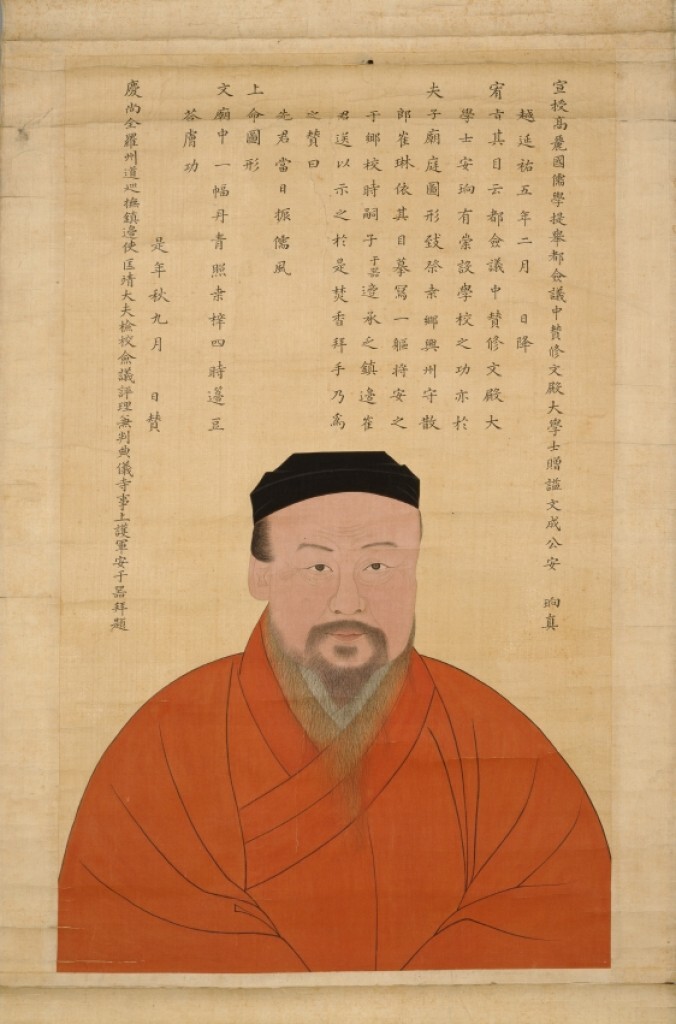 宣授高麗國儒學提舉都僉議中賛修文殿大學士贈謚文成公安 珦真
越延祐五年二月 日降
宥㫖其目云都僉議中賛修文殿大
學士安珦有崇設學校之功亦於
夫子廟庭圖形致祭耒鄉興州守散
郎崔琳依其目摹寫一軀將安之
于鄉校時嗣子于器邊承乏鎮邊崔
君送以示之於是焚香拜手乃為
之賛曰
先君當日振儒風
上命圖形
文廟中一幅丹青照桒梓四時籩豆
荅膚功
是年秋九月 日賛
慶尚全羅州道廵撫鎮邊使匡靖大夫檢校僉議評理兼判典儀寺事上護軍安于器拜題